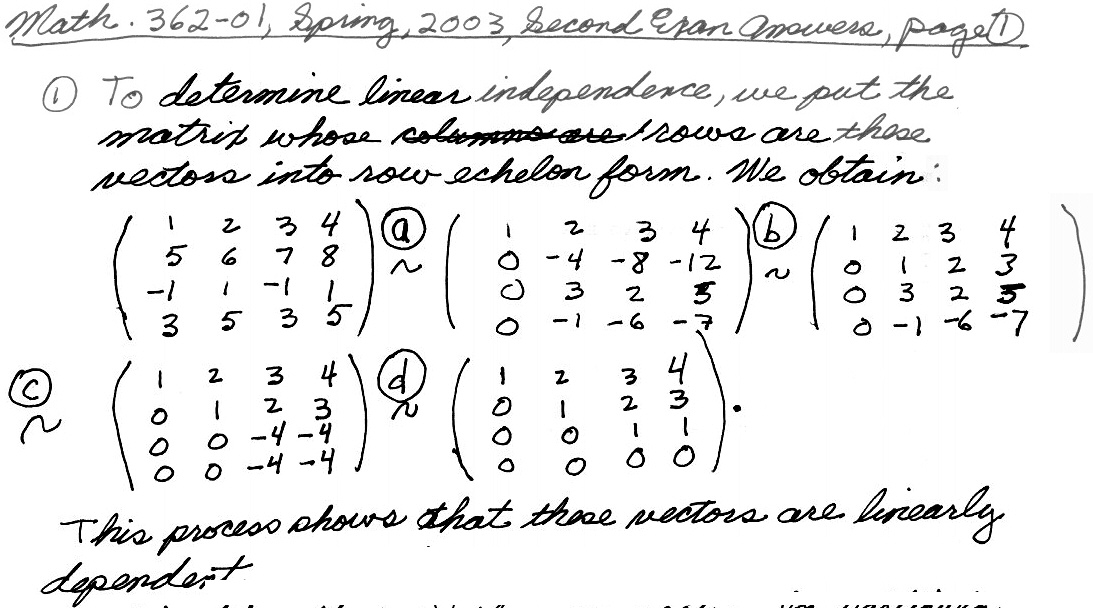 Math. 362-01, Spring, 2003, Second Exam Answers, page ①
① To determine linear independence, we put the
matrix whose columns are rows are these
vectors into row echelon form. We obtain:
( 1 2 3 4 ) ⓐ ( 1 2 3 4 ) ⓑ ( 1 2 3 4 )
( 5 6 7 8 ) ~ ( 0 -4 -8 -12 ) ~ ( 0 1 2 3 )
( -1 1 -1 1 ) ( 0 3 2 5 ) ( 0 3 2 5 )
( 3 5 3 5 ) ( 0 -1 -6 -7 ) ( 0 -1 -6 -7 )
ⓒ ( 1 2 3 4 ) ⓓ ( 1 2 3 4 )
~ ( 0 1 2 3 ) ~ ( 0 1 2 3 ) .
( 0 0 -4 -4 ) ( 0 0 1 1 )
( 0 0 -4 -4 ) ( 0 0 0 0 )
This process shows that these vectors are linearly
dependent